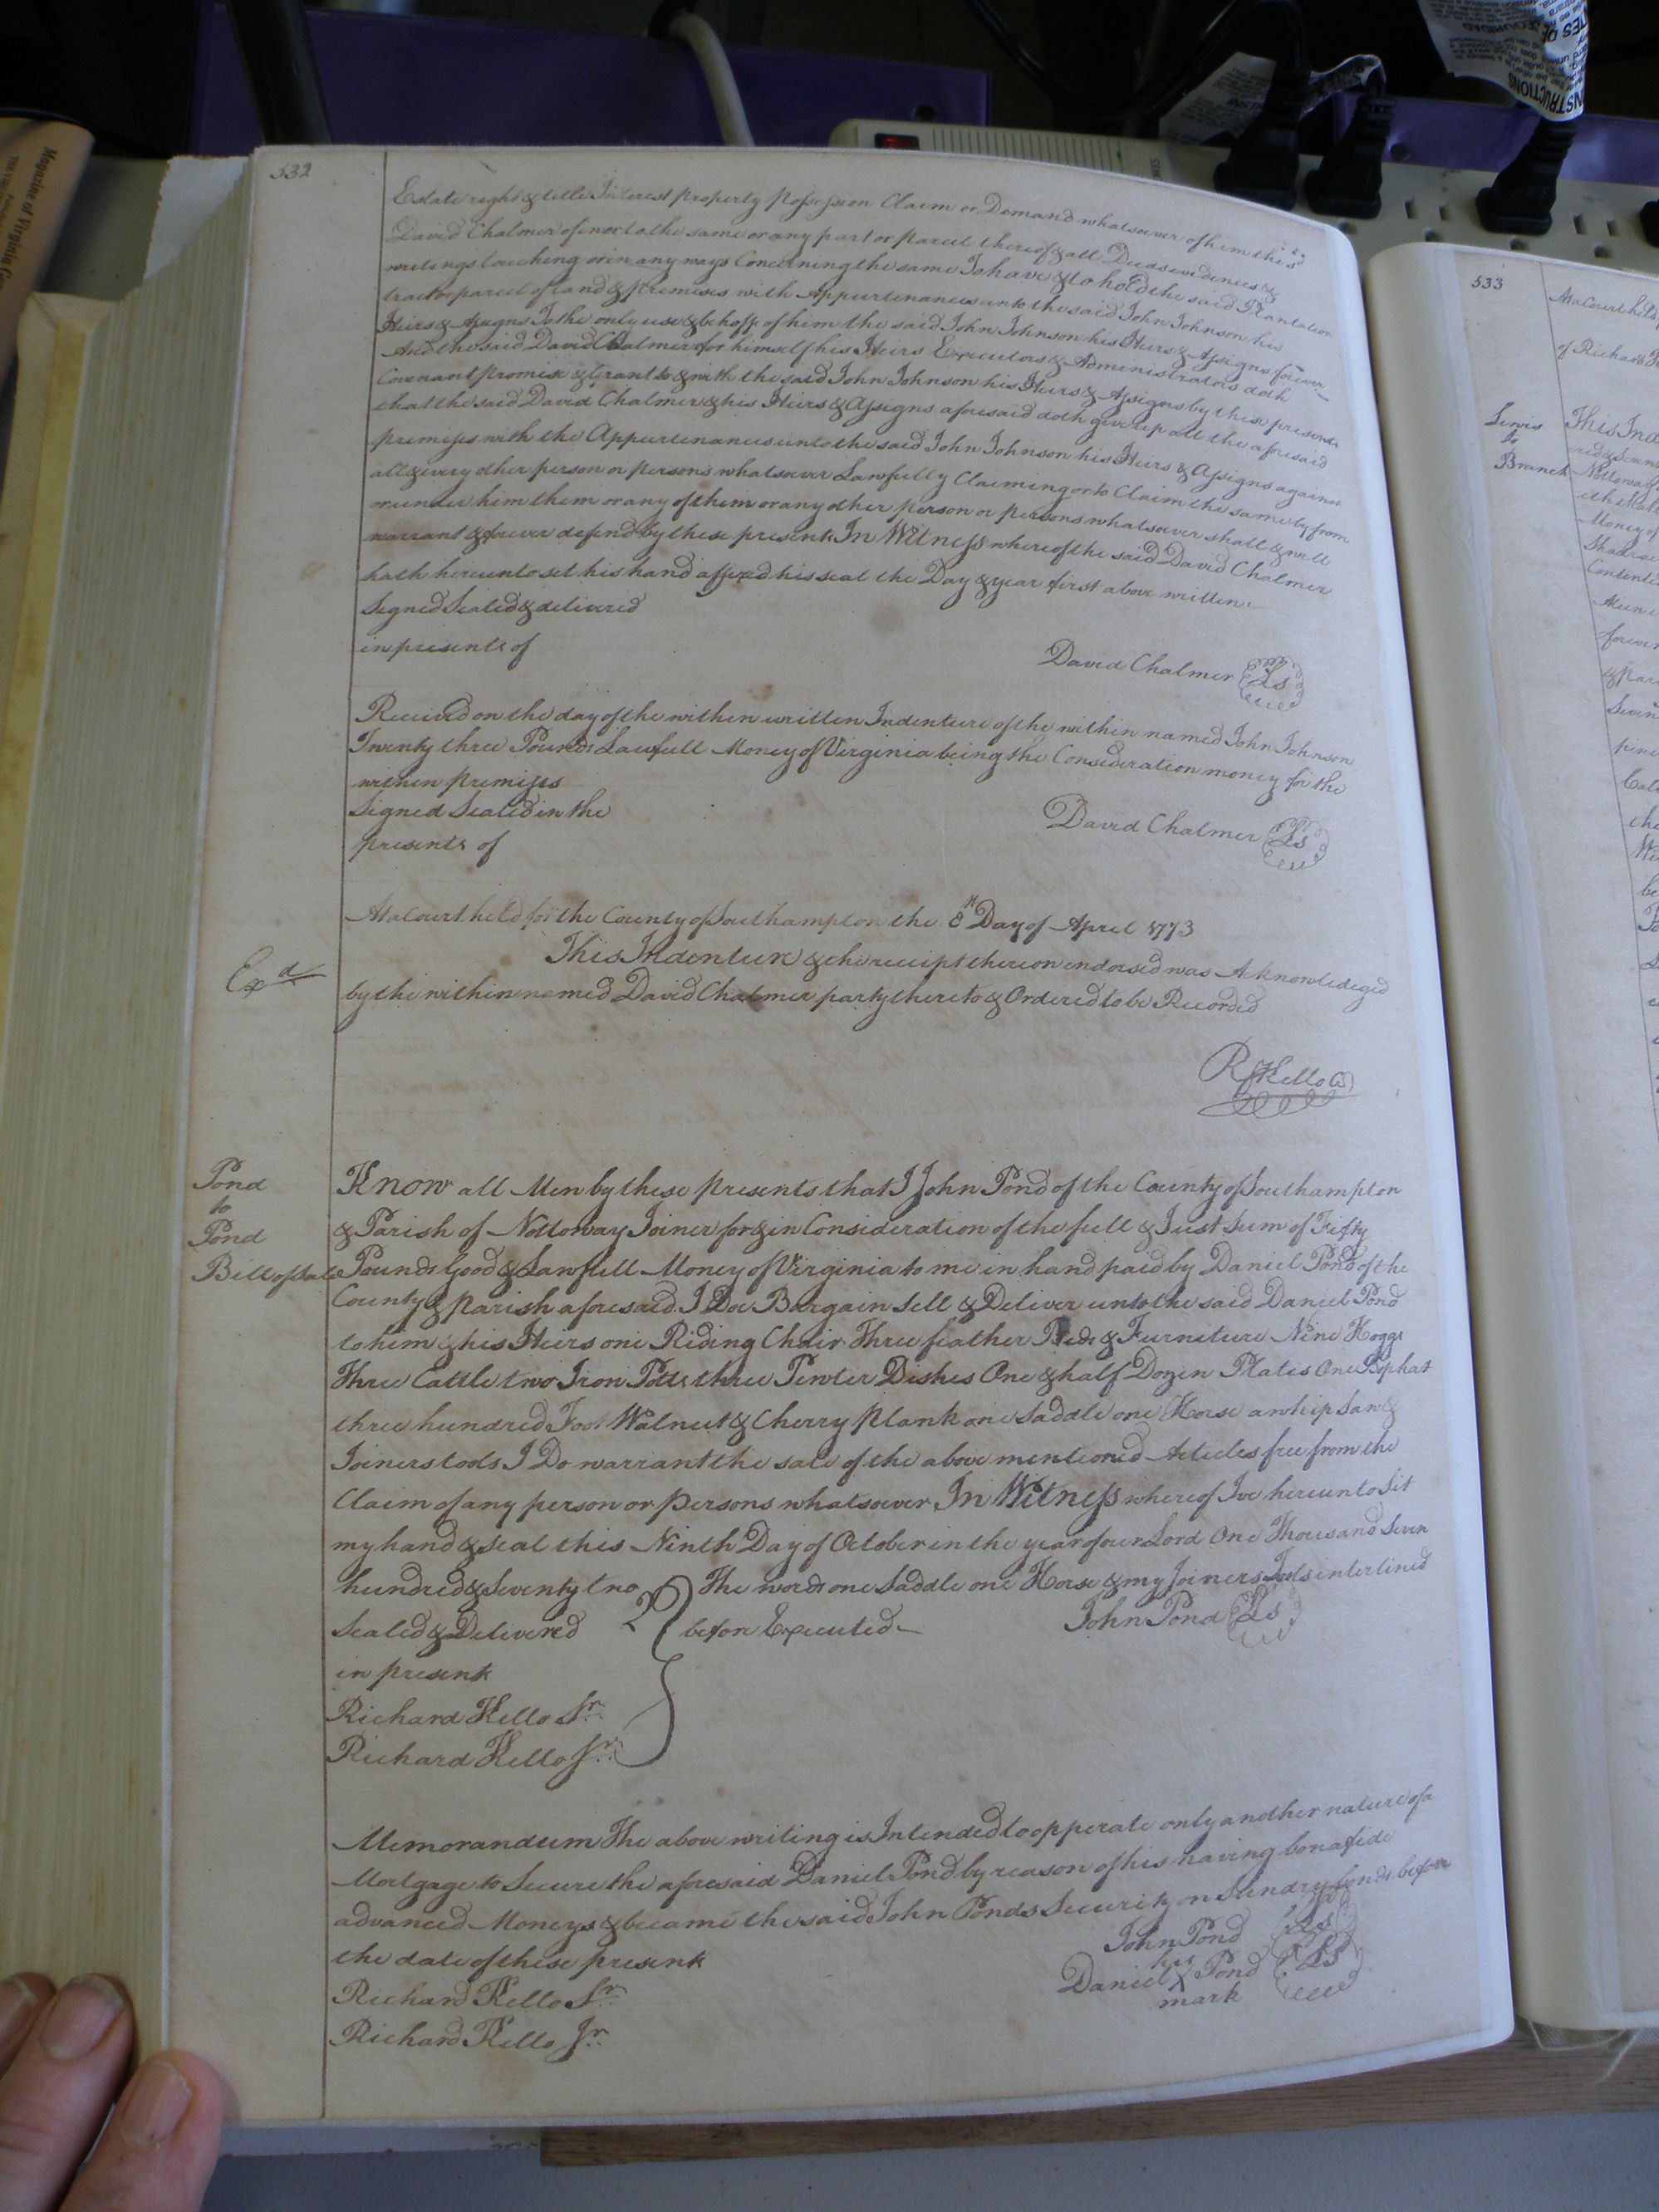 532
Estate right & title Interest property Possession Claim or Demand whatsoever of him the sd
David Chalmer of in or to the same or any part or parcel thereof & all Deeds evidences &
writings touching or in any ways Concerning the same To have & to hold the said Plantation
tract or parcel of Land & premises with Appurtenances unto the said John Johnson his
Heirs & Assigns To the only use & behoff of him the said John Johnson his Heirs & Assigns forever
And the said David Chalmer for himself his Heirs Executors & Administrators doth
Covenant promise & Grant to & with the said John Johnson his Heirs & Assigns by these presents
that the said David Chalmer & his Heirs & Assigns aforesaid doth give up all the aforesaid
premises with the Appurtenances unto the said John Johnson his Heirs & Assigns against
all & every other person or persons whatsoever Lawfully Claiming or to Claim the same by from
or under him them or any of them or any other person or persons whatsoever shall & will
warrant & forever defend by these presents In Witness whereof the said David Chalmer
hath hereunto set his hand affixed his seal the Day & year first above written
Signed Sealed & delivered
in presents of
David Chalmer Ls
Received on the day of the within written Indenture of the within named John Johnson
Twenty three Pounds Lawfull Money of Virginia being the Consideration money for the
within premises
Signed Sealed in the
presents of
David Chalmer Ls
At a Court held for the County of Southampton the 8th Day of April 1773
This Indenture & the receipt thereon endorsed was Acknowledged
Exd
by the within named David Chalmer party thereto & Ordered to be Recorded
R Kello C
Pond
to
Pond
Bill of Sale
Know all Men by these presents that I John Pond of the County of Southampton
& Parish of Nottoway Joiner for & in Consideration of the full & Just Sum of Fifty
Pounds Good & Lawfull Money of Virginia to me in hand paid by Daniel Pond of the
County & parish aforesaid. I Doe Bargain Sell & Deliver unto the said Daniel Pond
to him & his Heirs one Riding Chair Three feather Beds & Furniture Nine Hoggs
Three Cattle two Iron Potts three Pewter Dishes One & half Dozen Plates One
three hundred Foot Walnut & Cherry Plank one Saddle one Horse a whip Saw &
Joiners tools I Do warrant the sale of the above mentioned Articles free from the
Claim of any person or persons whatsoever In Witness whereof I've hereunto Set
my hand & seal this Ninth Day of October in the year of our Lord One Thousand Seven
hundred & Seventy two The words one Saddle one Horse & my Joiners Tools interlined
Sealed & Delivered before Executed
John Pond Ls
in presents
Richard Kello Sr.
Richard Kello Jr.
Memorandum The above writing is Intended to opperate only another nature of a
Mortgage to Secure the aforesaid Daniel Pond by reason of his having bonafide
advanced Moneys & became the said John Ponds Security on Sundry bonds before
the date of these presents
John Pond Ls
Daniel his X mark Pond Ls
Richard Kello Sr.
Richard Kello Jr.
533
At a Court held
of Richard
Lewis
to
Branch
This Ind
Nottoway
Money of
forever
Magazine of Virginia
INSTRUCTIONS